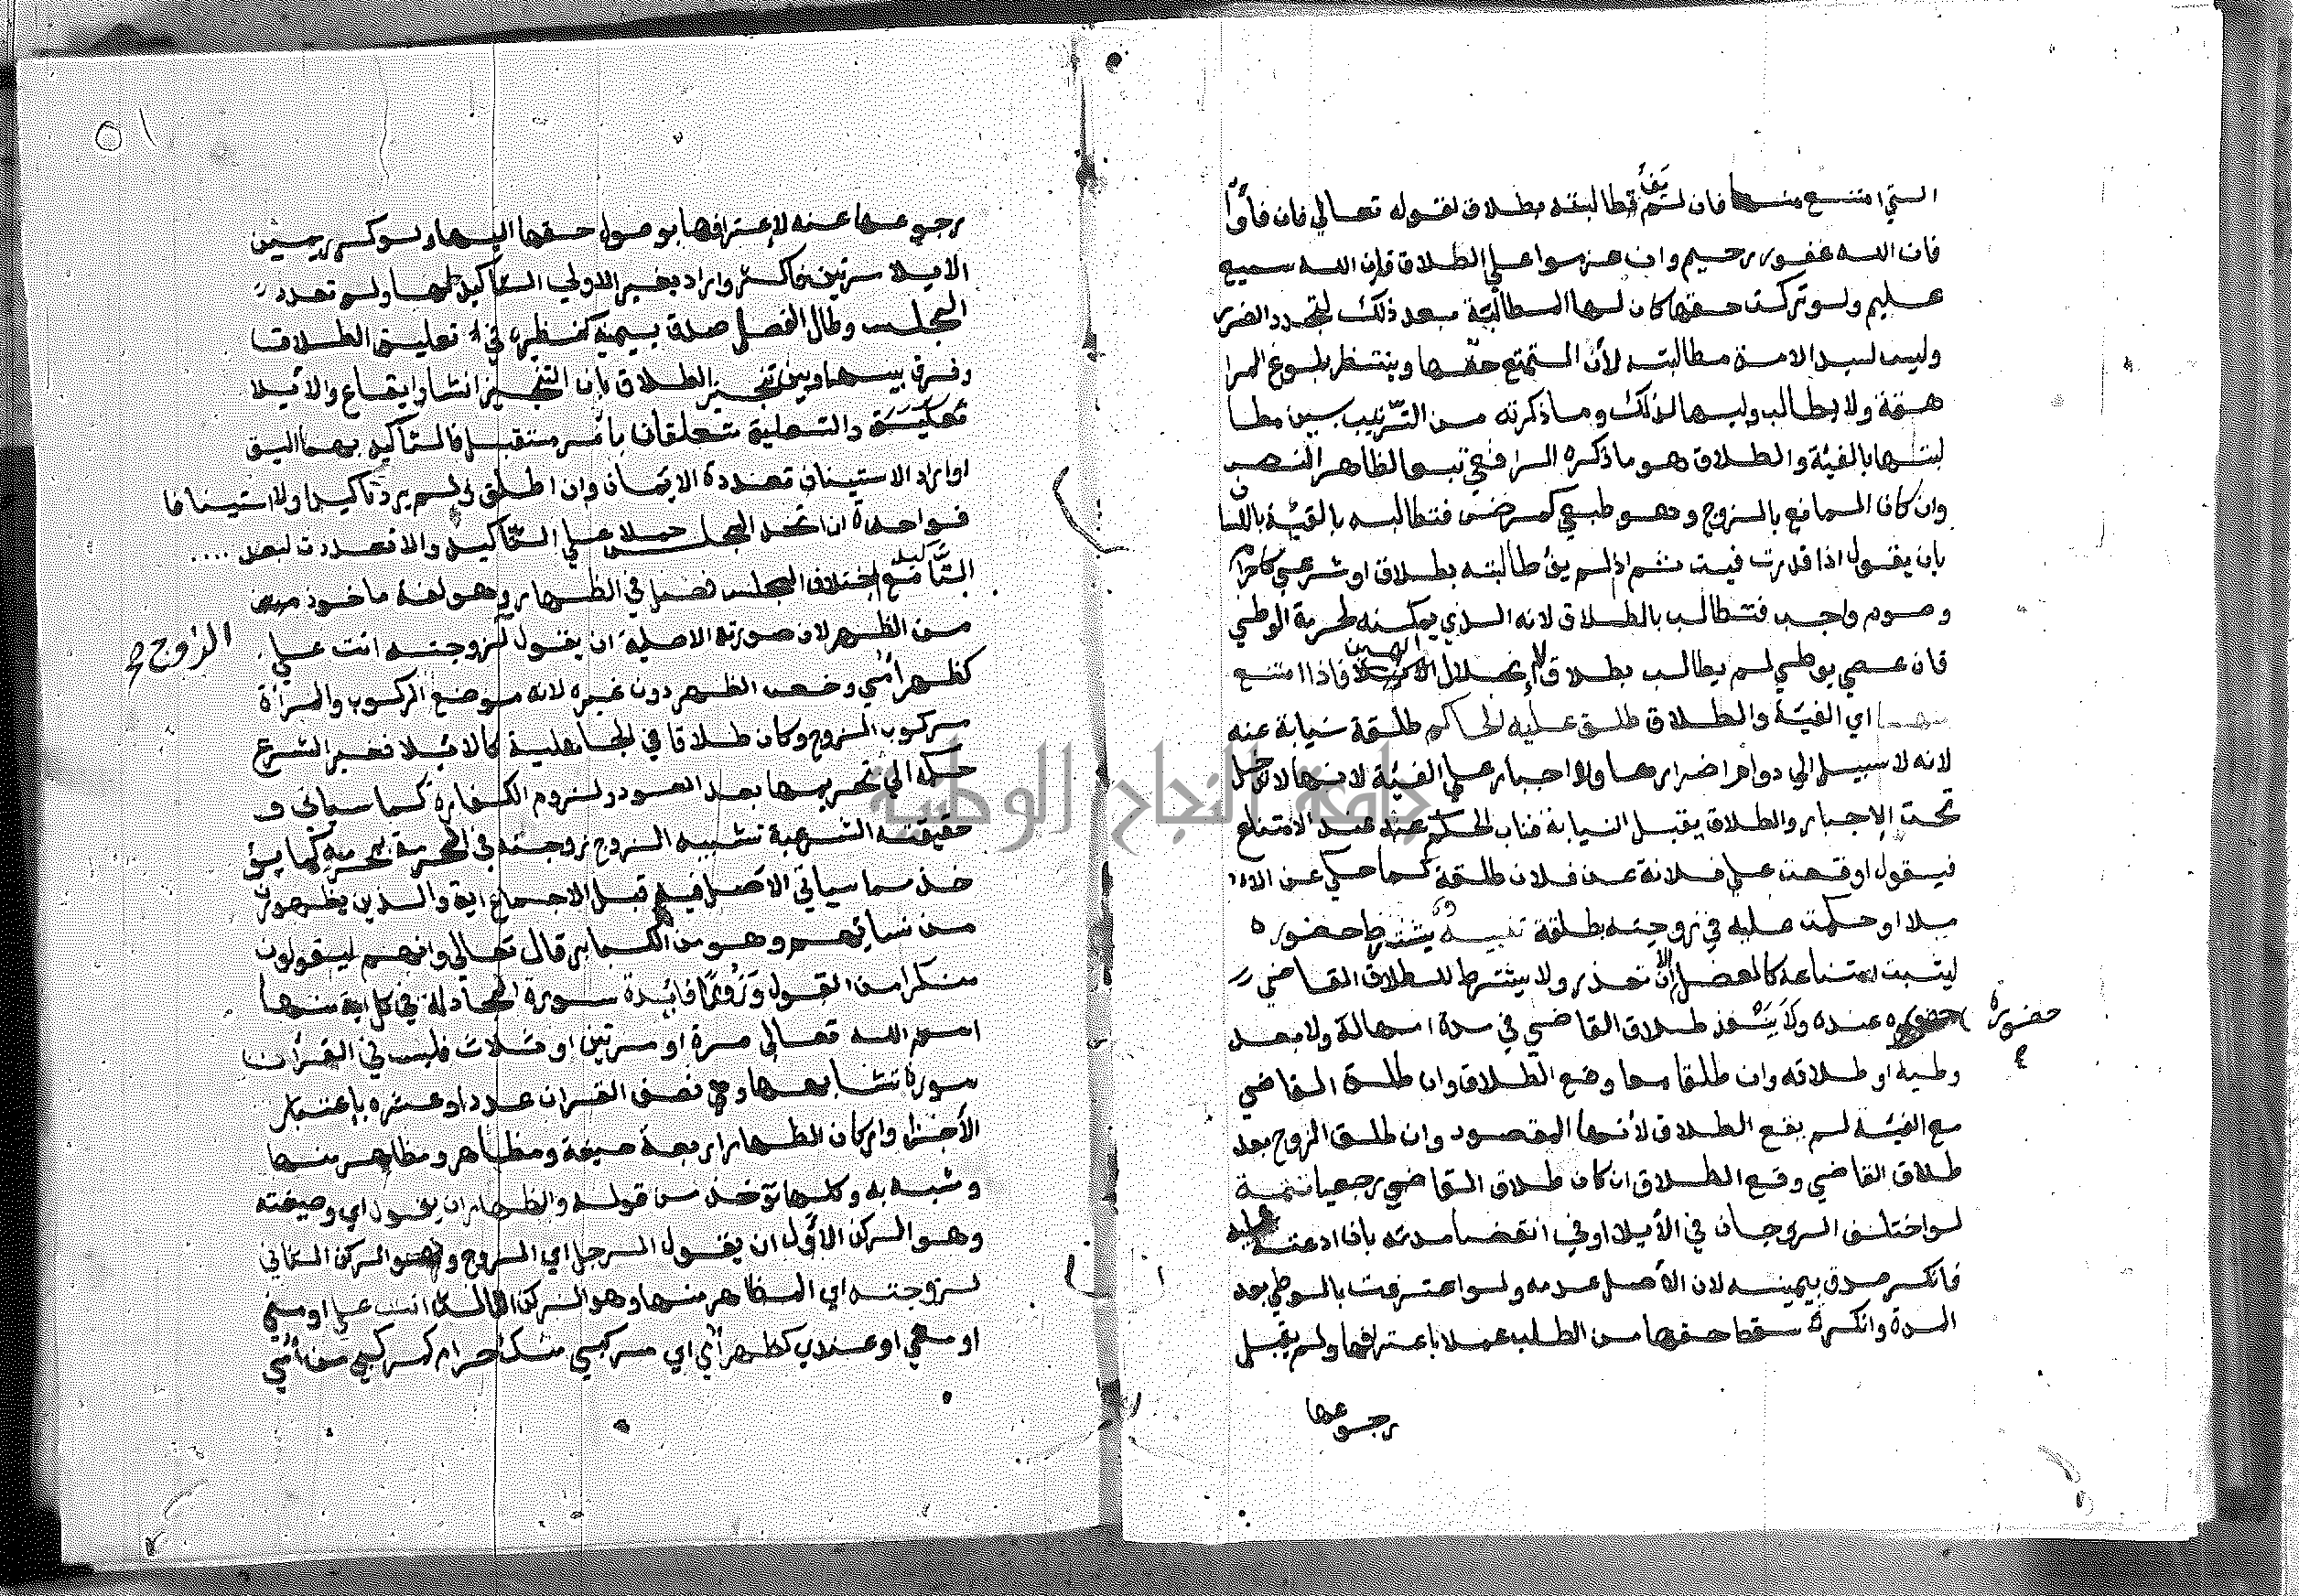 التي امتنع منها فان لم يف تطالبته بطلاق لقوله تعالي فان فاؤا
فان الله غفور رحيم وان عزموا علي الطلاق فان الله سميع
عليم ولو تركت حقها كان لها المطالبة بعد ذلك لتجدد الضرر
وليس لسيد الامة مطالبته لأن التمتع حقها وينتظر بلوغ المرا
هقة ولا يطالب وليها لذلك وما ذكرته من الترتيب بين مطا
لبتها بالفيئة والطلاق هو ما ذكره الرافعي تبعا لظاهر النص
وان كان المانع بالزوج وهو طبعي كمرض فتطالبه بالفيئة باللسان
بان يقول اذا قدرت فيت ثم اذ لم يف طالبته بطلاق او شرعي كاحرام
وصوم واجب فتطالب بالطلاق لانه الذي يمكنه لحرمة الوطي
فان عصي بوطي لم يطالب بطلاق لانحلال اليمين فاذا امتنع
منهما اي الفيئة والطلاق طلق عليه الحاكم طلقة نيابة عنه
لانه لا سبيل الي دوام اضرارها ولا اجبار علي الفيئة لانها لا تدخل
تحت الإجبار والطلاق يقبل النيابة فناب الحكم عنه عند الامتناع
فيقول اوقعت علي فلانة عن فلان طلقة كما حكي عن الام
بلا او حكمت عليه في زوجته بطلقة تنبيه يشترط حضوره
ليثبت امتناعه كالعضل إلا ان تعذر ولا يشترط للطلاق القاضي
حضوره عنده ولا ينفذ طلاق القاضي في مدة امهاله ولا بعد
حضوره
وطيه او طلاقه وان طلقا معا وقع الطلاق وان طلق القاضي
مع الفيئة لم يقع الطلاق لأنها المقصود وان طلق الزوج بعد
طلاق القاضي وقع الطلاق ان كان طلاق القاضي رجعيا تتمة
لو اختلف الزوجان في الأيلا او في انقضا مدته بان ادعته عليه
فانكر صدق بيمينه لان الأصل عدمه ولو اعترفت بالوطي بعد
المدة وانكره سقط حقها من الطلب عملا باعترافها ولم يقبل
رجوعها
٥١
رجوعها عنه لإعترافها بوصول حقها اليها ولو كرر يمين
الايلا مرتين فاكثر واراد بغير الاولي التأكيد لها ولو تعدد
المجلس وطال الفصل صدق بيمينه كنظيره في تعليق الطلاق
وفرق بينهما وبين تنجيز الطلاق بان التنجيز انشا وايقاع والأيلا
تعليق والتعليق متعلقان بأمر مستقبل فالتأكيد بهما اليق
او اراد الاستيناف تعددة الايمان وان اطلق لم يرد تاكيدا ولا استينافا
فواحدة ان اتحد المجلس حملا علي التأكيد والا تعددت لبعد ....
التأكيد مع اختلاف المجلس فصل في الظهار وهو لغة ماخوذ
من الظهر لان صورته الاصلية ان يقول لزوجته انت علي
الزوج
كظهر أمي وخص الظهر دون غيره لانه موضع الركوب والمرأة
مركوب الزوج وكان طلاقا في الجاهلية كالائيلا فغير الشرع
حكمه الي تحريمها بعد العود ولزوم الكفارة كما سياتى و
حقيقته الشرعية تشبيه الزوج زوجته في الحرمة بمحرمه كما يؤ
خذ مما سياتي الأصل فيه قبل الاجماع اية والذين يظهرون
من نسائهم وهو من الكبائر قال تعالي وانهم ليقولون
منكرا من القول وزورا فائدة سورة المجادلة في كل اية منها
اسم الله تعالى مرة او مرتين او ثلاث فليس في القرآن
سورة تشابهها وهي نصف القران عددا وعشره بإعتبار
الأجزا واركان الظهار اربعة صيغة ومظاهر ومظاهر منها
ومشبه به وكلها تؤخذ من قوله والظهار ان يقول اي وصيغته
وهو الركن الأول ان يقول الرجل اي الزوج وهو الركن الثاني
لزوجته اي المظاهر منها وهو الركن الثالث انت علي او مني
او معي او عندي كظهر أمي اي مركبي منك حرام كمركبي من أمي